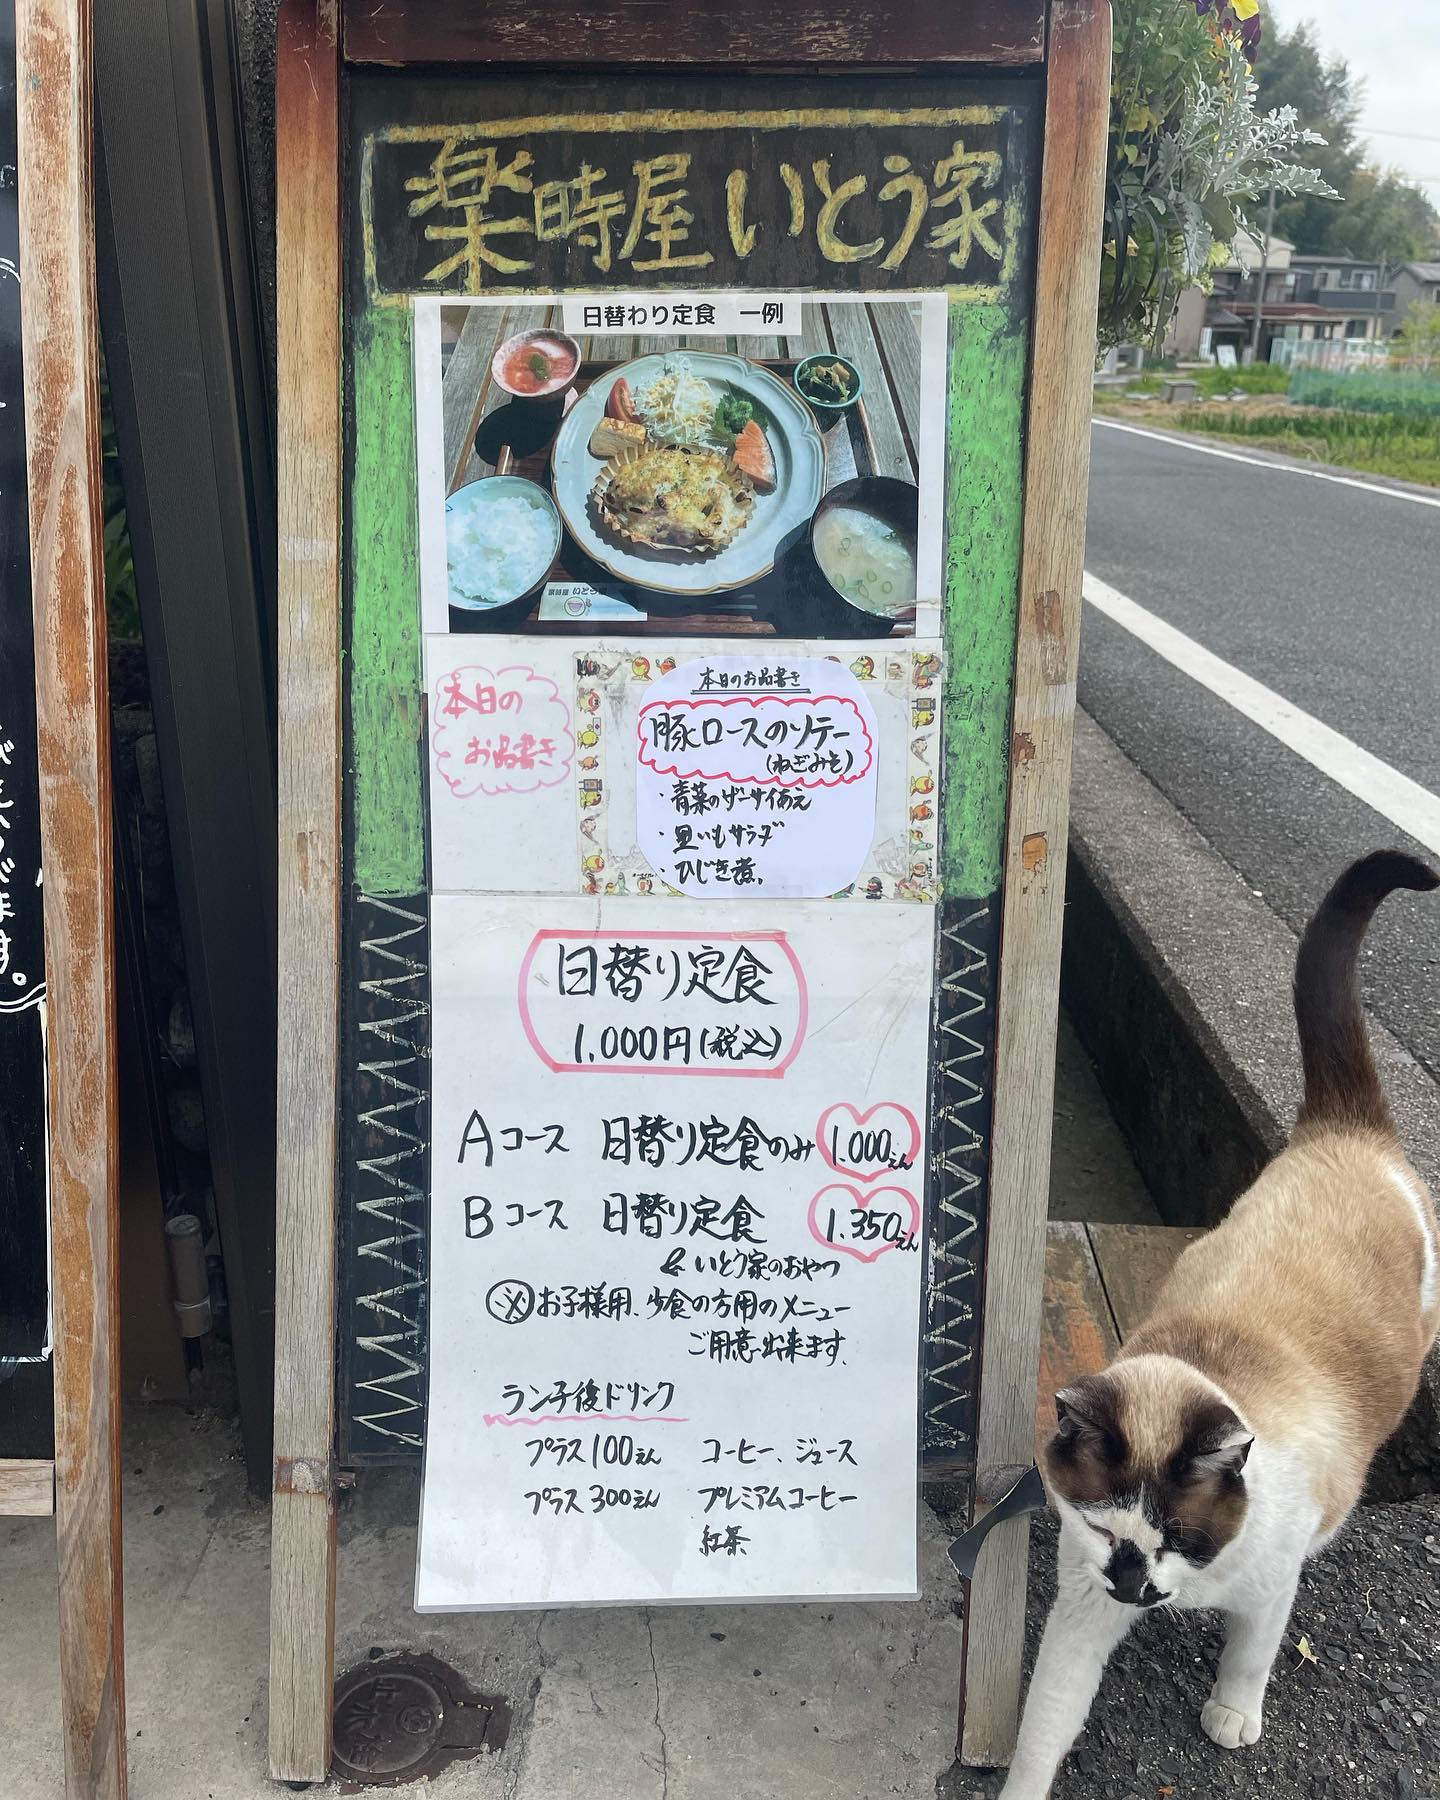 楽時屋 いとう家
日替わり定食 一例
楽時屋 いとう家
本日の
お品書き
本日のお品書き
豚ロースのソテー
(ねぎみそ)
・青菜のザーサイあえ
・里いもサラダ
・ひじき煮。
日替り定食
1.000円(税込)
Aコース 日替り定食のみ 1.000えん
Bコース 日替り定食 1.350えん
& いとう家のおやつ
※お子様用、少食の方用のメニュー
ご用意出来ます。
ランチ後ドリンク
プラス100えん コーヒー、ジュース
プラス300えん プレミアムコーヒー
紅茶